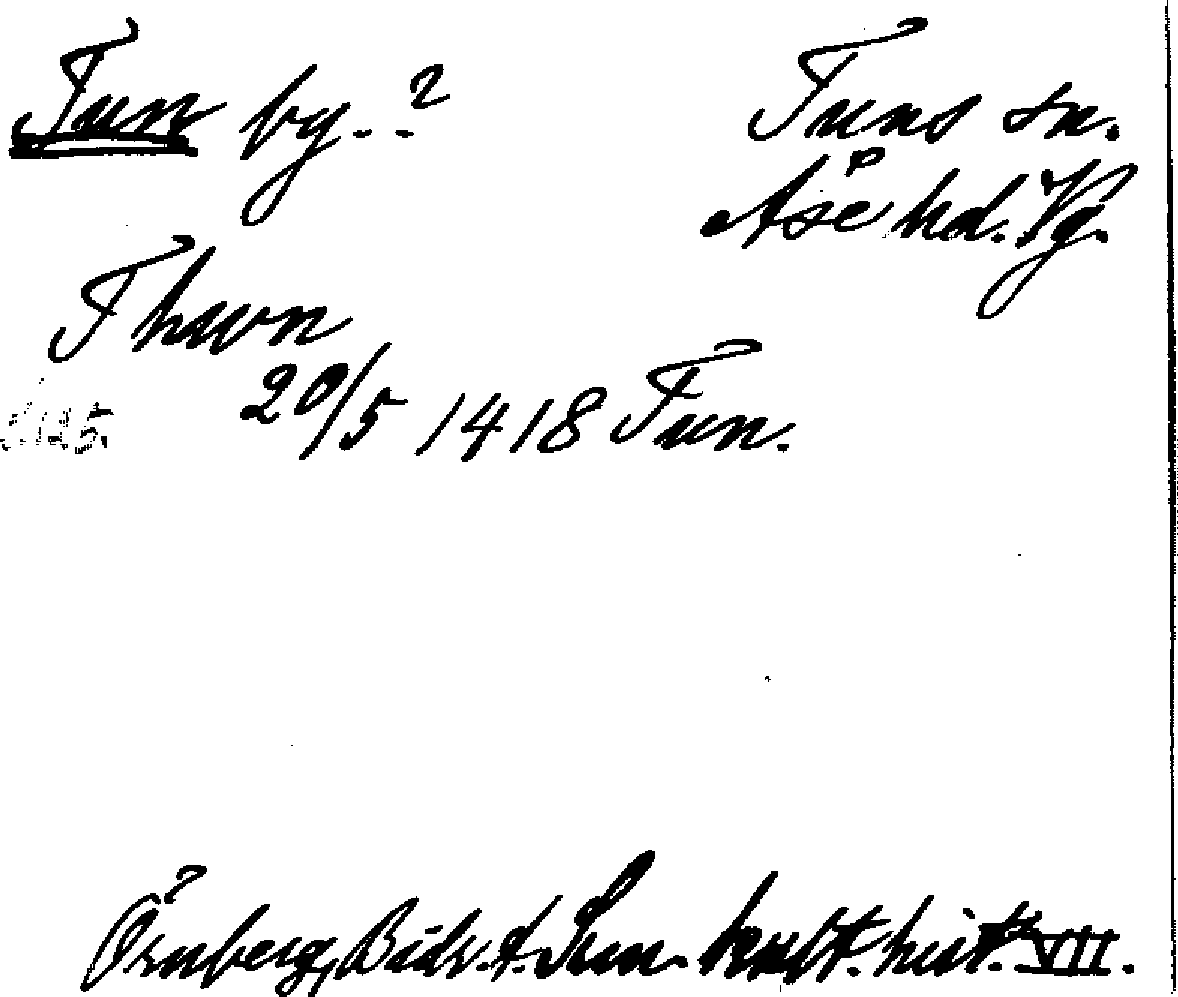 Tun by.?
Tuns sn.
Åse hd. Vg.
Thwn
20/5 1418 Tun.
Örnberg, Bidr. t. Sv. kult. hist. VII.